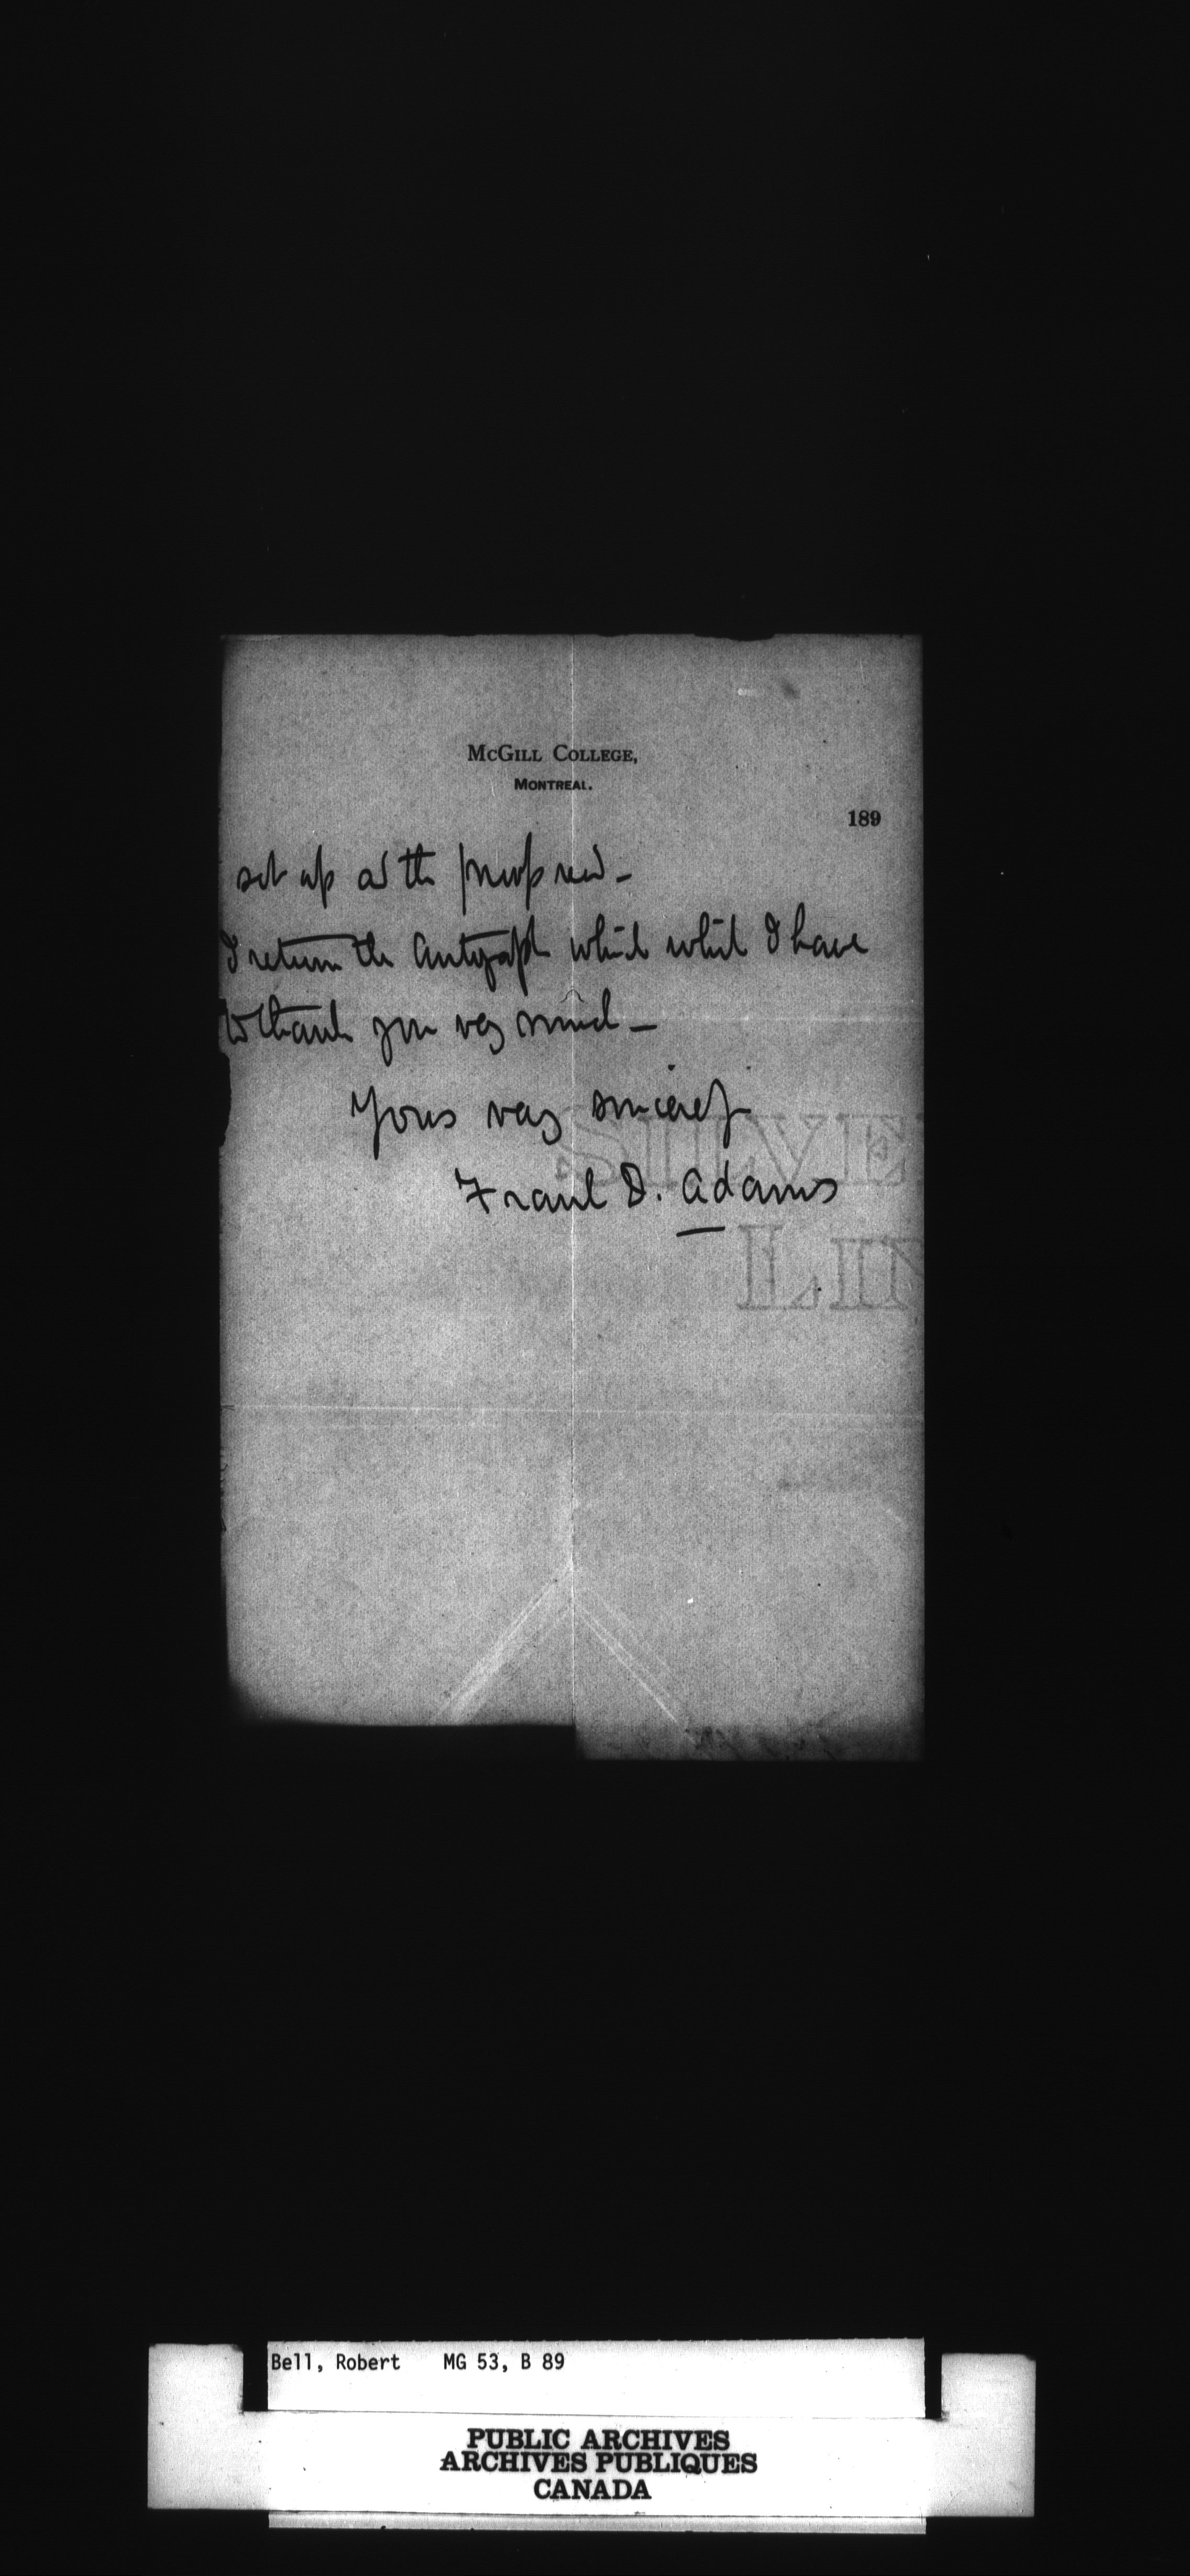 McGill College,
Montreal.
189
set up as the proof read -
I return the autograph which which I have
to thank you very much -
Yours very sincerely
Frank D. Adams
SILVE
LIN
Bell, Robert MG 53, B 89
PUBLIC ARCHIVES
ARCHIVES PUBLIQUES
CANADA